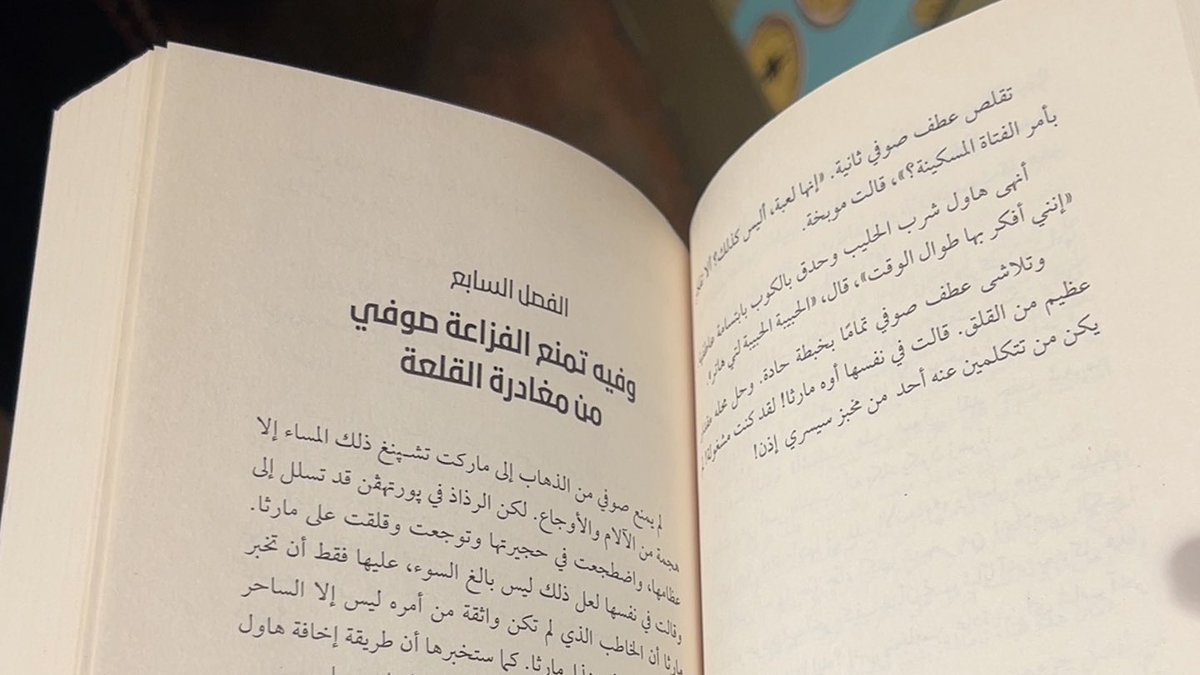 تقلص عطف صوفي ثانية. «إنها لعبة، أليس كذلك؟ ألا
بأمر الفتاة المسكينة؟»، قالت موبخة.
أنهى هاول شرب الحليب وحدق بالكوب بابتسامة
«إنني أفكر بها طوال الوقت»، قال، «الحبيبة الحبيبة لتي هاتر!
وتلاشى عطف صوفي تمامًا بخبطة حادة. وحل محله مقدار
عظيم من القلق. قالت في نفسها أوه مارثا! لقد كنت مشغولة!
يكن من تتكلمين عنه أحد من مخبز سيسري إذن!
الفصل السابع
وفيه تمنع الفزاعة صوفي
من مغادرة القلعة
لم يمنع صوفي من الذهاب إلى ماركت تشيپنغ ذلك المساء إلا
هجمة من الآلام والأوجاع. لكن الرذاذ في پورتهڤن قد تسلل إلى
عظامها، واضطجعت في حجيرتها وتوجعت وقلقت على مارثا.
وقالت في نفسها لعل ذلك ليس بالغ السوء، عليها فقط أن تخبر
مارثا أن الخاطب الذي لم تكن واثقة من أمره ليس إلا الساحر
مارثا. كما ستخبرها أن طريقة إخافة هاول